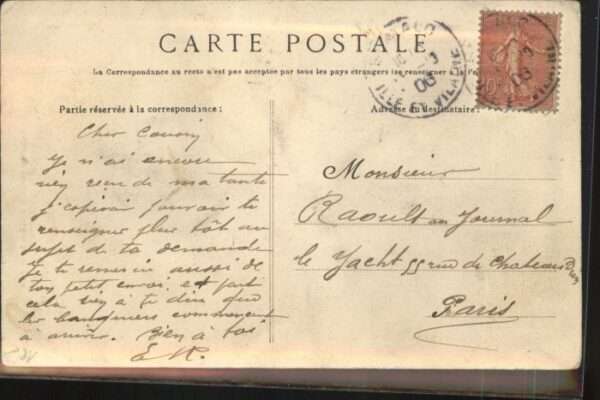 CARTE POSTALE
La Correspondance au recto n'est pas acceptée par tous les pays étrangers (se renseigner à la
Partie réservée à la correspondance :
Adresse du destinataire :
Cher Cousin
Je n'ai encore
rien recu de ma tante
j'espérais pouvoir te
renseigner plus tôt au
sujet de ta demande
Je te remercie aussi de
ton petit envoi. et à part
cela rien à te dire que
les baigneurs commencent
à arriver. Bien à toi
E. R.
Monsieur
Raoult au Journal
le Yacht 55 rue de Chateaudun
Paris
ILLE-ET-VILAINE
10